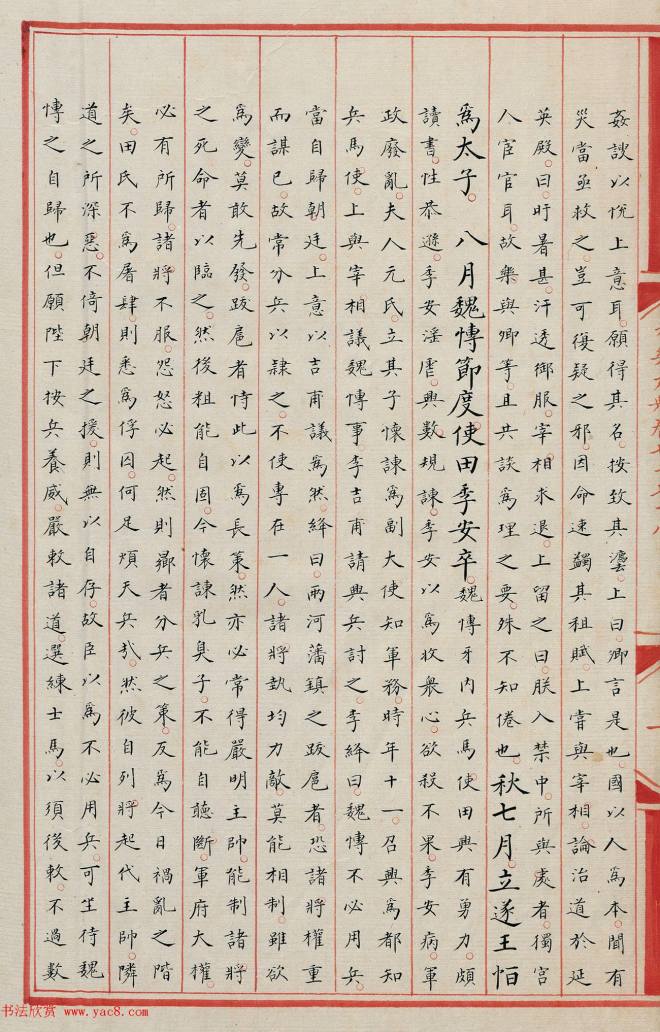 姦諛以悅上意耳願得其名按致其灋上曰卿言是也國以人爲本聞有
災當亟救之豈可復疑之邪因命速蠲其租賦上嘗與宰相論治道於延
英殿曰旰暑甚汗透御服宰相求退上留之曰朕入禁中所與處者獨宮
人宦官耳故樂與卿等且共談爲理之要殊不知倦也秋七月立遂王恒
爲太子八月魏愽節度使田季安卒魏愽牙內兵馬使田興有勇力頗
讀書性恭遜季安淫虐興數規諫季安以爲收衆心欲殺不果季安病軍
政廢亂夫人元氏立其子懷諫爲副大使知軍務時年十一召興爲都知
兵馬使上與宰相議魏愽事李吉甫請興兵討之李絳曰魏愽不必用兵
當自歸朝廷上意以吉甫議爲然絳曰兩河藩鎮之跋扈者恐諸將權重
而謀已故常分兵以隸之不使專在一人諸將執均力敵莫能相制雖欲
爲變莫敢先發跋扈者恃此以爲長策然亦必常得嚴明主帥能制諸將
之死命者以臨之然後粗能自固今懷諫乳臭子不能自聽斷軍府大權
必有所歸諸將不服怨怒必起然則曏者分兵之策反爲今日禍亂之階
矣田氏不爲屠肆則悉爲俘囚何足煩天兵哉然彼自列將起代主帥隣
道之所深惡不倚朝廷之援則無以自存故臣以爲不必用兵可坐待魏
愽之自歸也但願陛下按兵養威嚴敕諸道選練士馬以須後敕不過數
书法欣赏 www.yac8.com